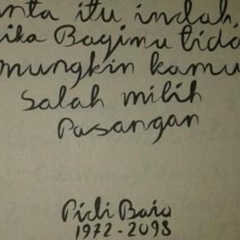 nta itu indah,
ika Bagimu tida
mungkin kamu
salah milih
Pasangan
Pidi Baiq
1972-2098